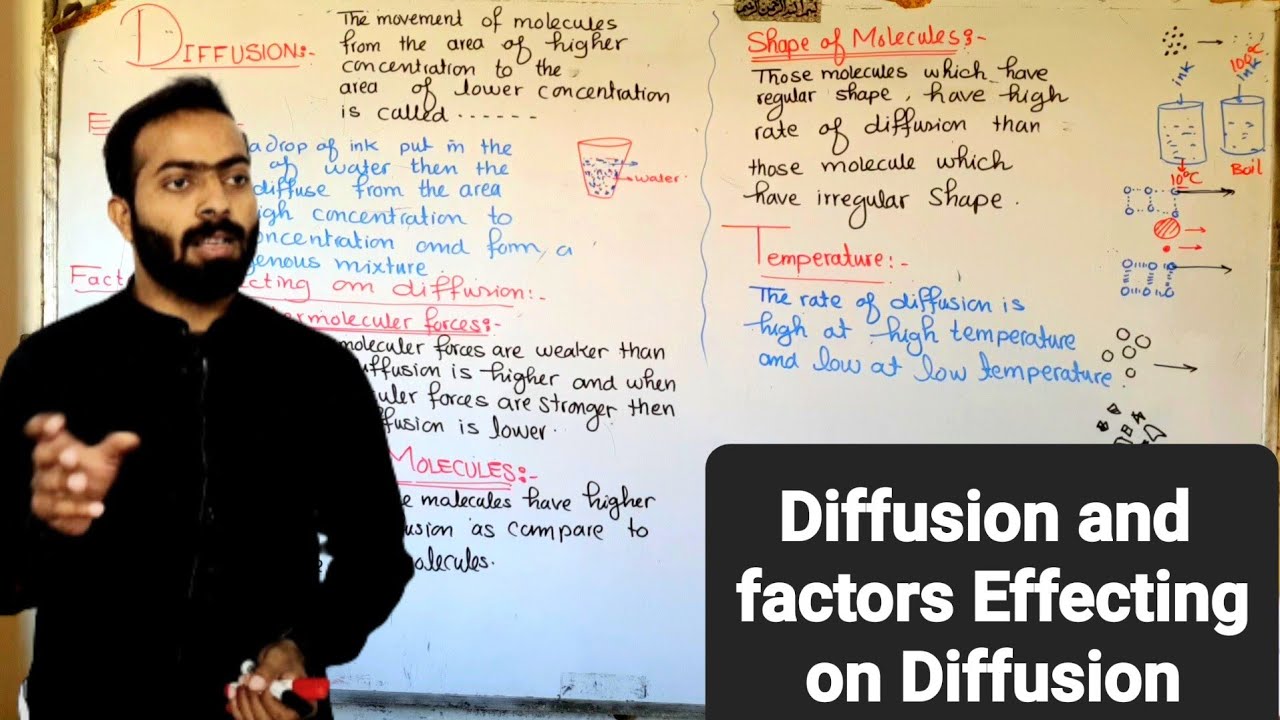 DIFFUSION:-
The movement of molecules
from the area of higher
concentration to the
area of lower concentration
is called ......
E
a drop of ink put in the
of water then the
diffuse from the area
igh concentration to
oncentration and form a
genous mixture
water.
Fact cting on diffusion:-
ermoleculer forces:-
moleculer forces are weaker than
iffusion is higher and when
uler forces are stronger then
ffusion is lower.
MOLECULES:-
e malecules have higher
usion as compare to
olecules.
Shape of Molecules:-
Those molecules which have
regular shape, have high
rate of diffusion than
those molecule which
have irregular Shape.
Temperature:-
The rate of diffusion is
high at high temperature
and low at low temperature.
ink
100°C
ink
10°C
Boil
Diffusion and
factors Effecting
on Diffusion